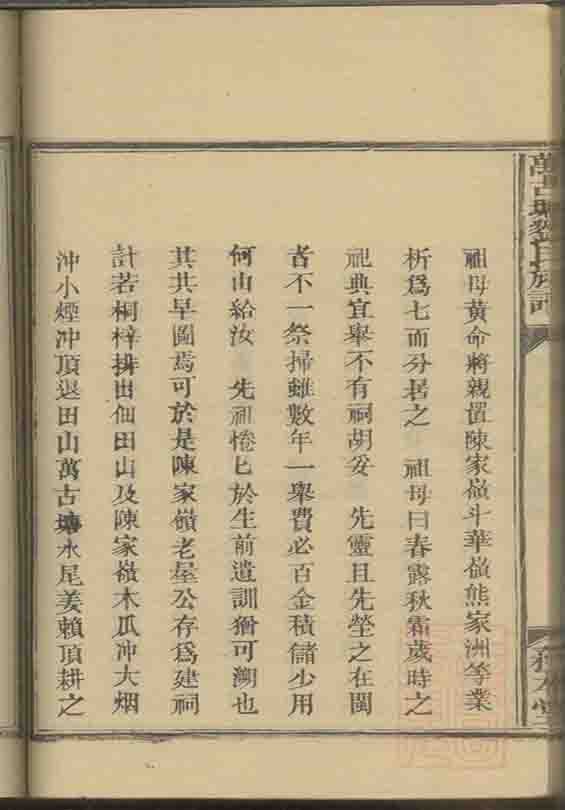 祖母黃命將親置陳家嶺斗華嶺熊家洲等業
析爲七而分居之 祖母曰春露秋霜歲時之
祀典宜舉不有祠胡妥 先靈且先塋之在閩
者不一祭掃雖數年一舉費必百金積儲少用
何由給汝 先祖惓匕於生前遺訓猶可溯也
其共早圖焉可於是陳家嶺老屋公存爲建祠
計若桐梓排出佃田山及陳家嶺木瓜冲大烟
冲小煙冲頂退田山萬古塘水尾姜賴頂耕之